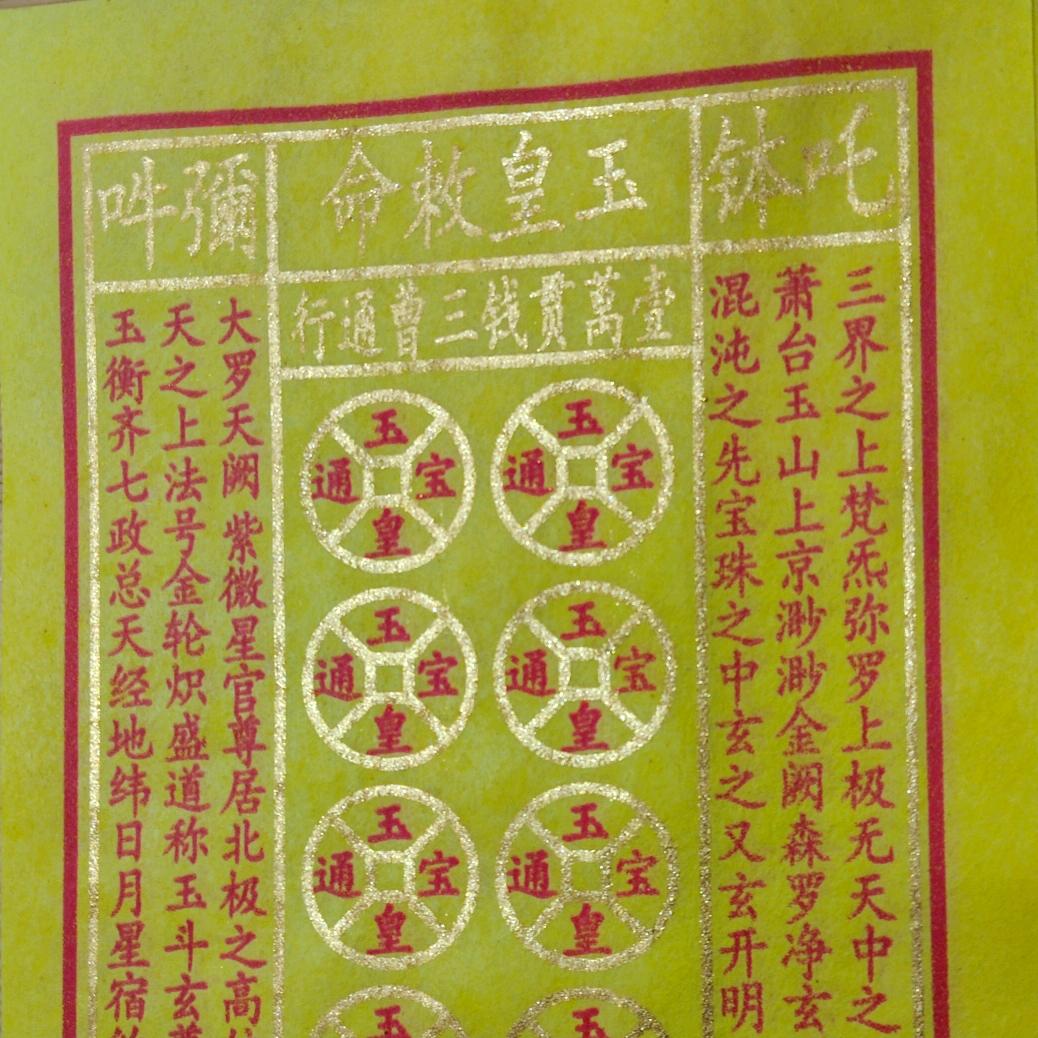 吒钵
玉皇敕命
彌吽
壹萬貫钱三曹通行
三界之上梵炁弥罗上极无天中之
萧台玉山上京渺渺金阙森罗净玄
混沌之先宝珠之中玄之又玄开明
玉皇通宝
玉皇通宝
玉皇通宝
玉皇通宝
玉皇通宝
玉皇通宝
玉
玉
大罗天阙紫微星官尊居北极之高
天之上法号金轮炽盛道称玉斗玄
玉衡齐七政总天经地纬日月星宿